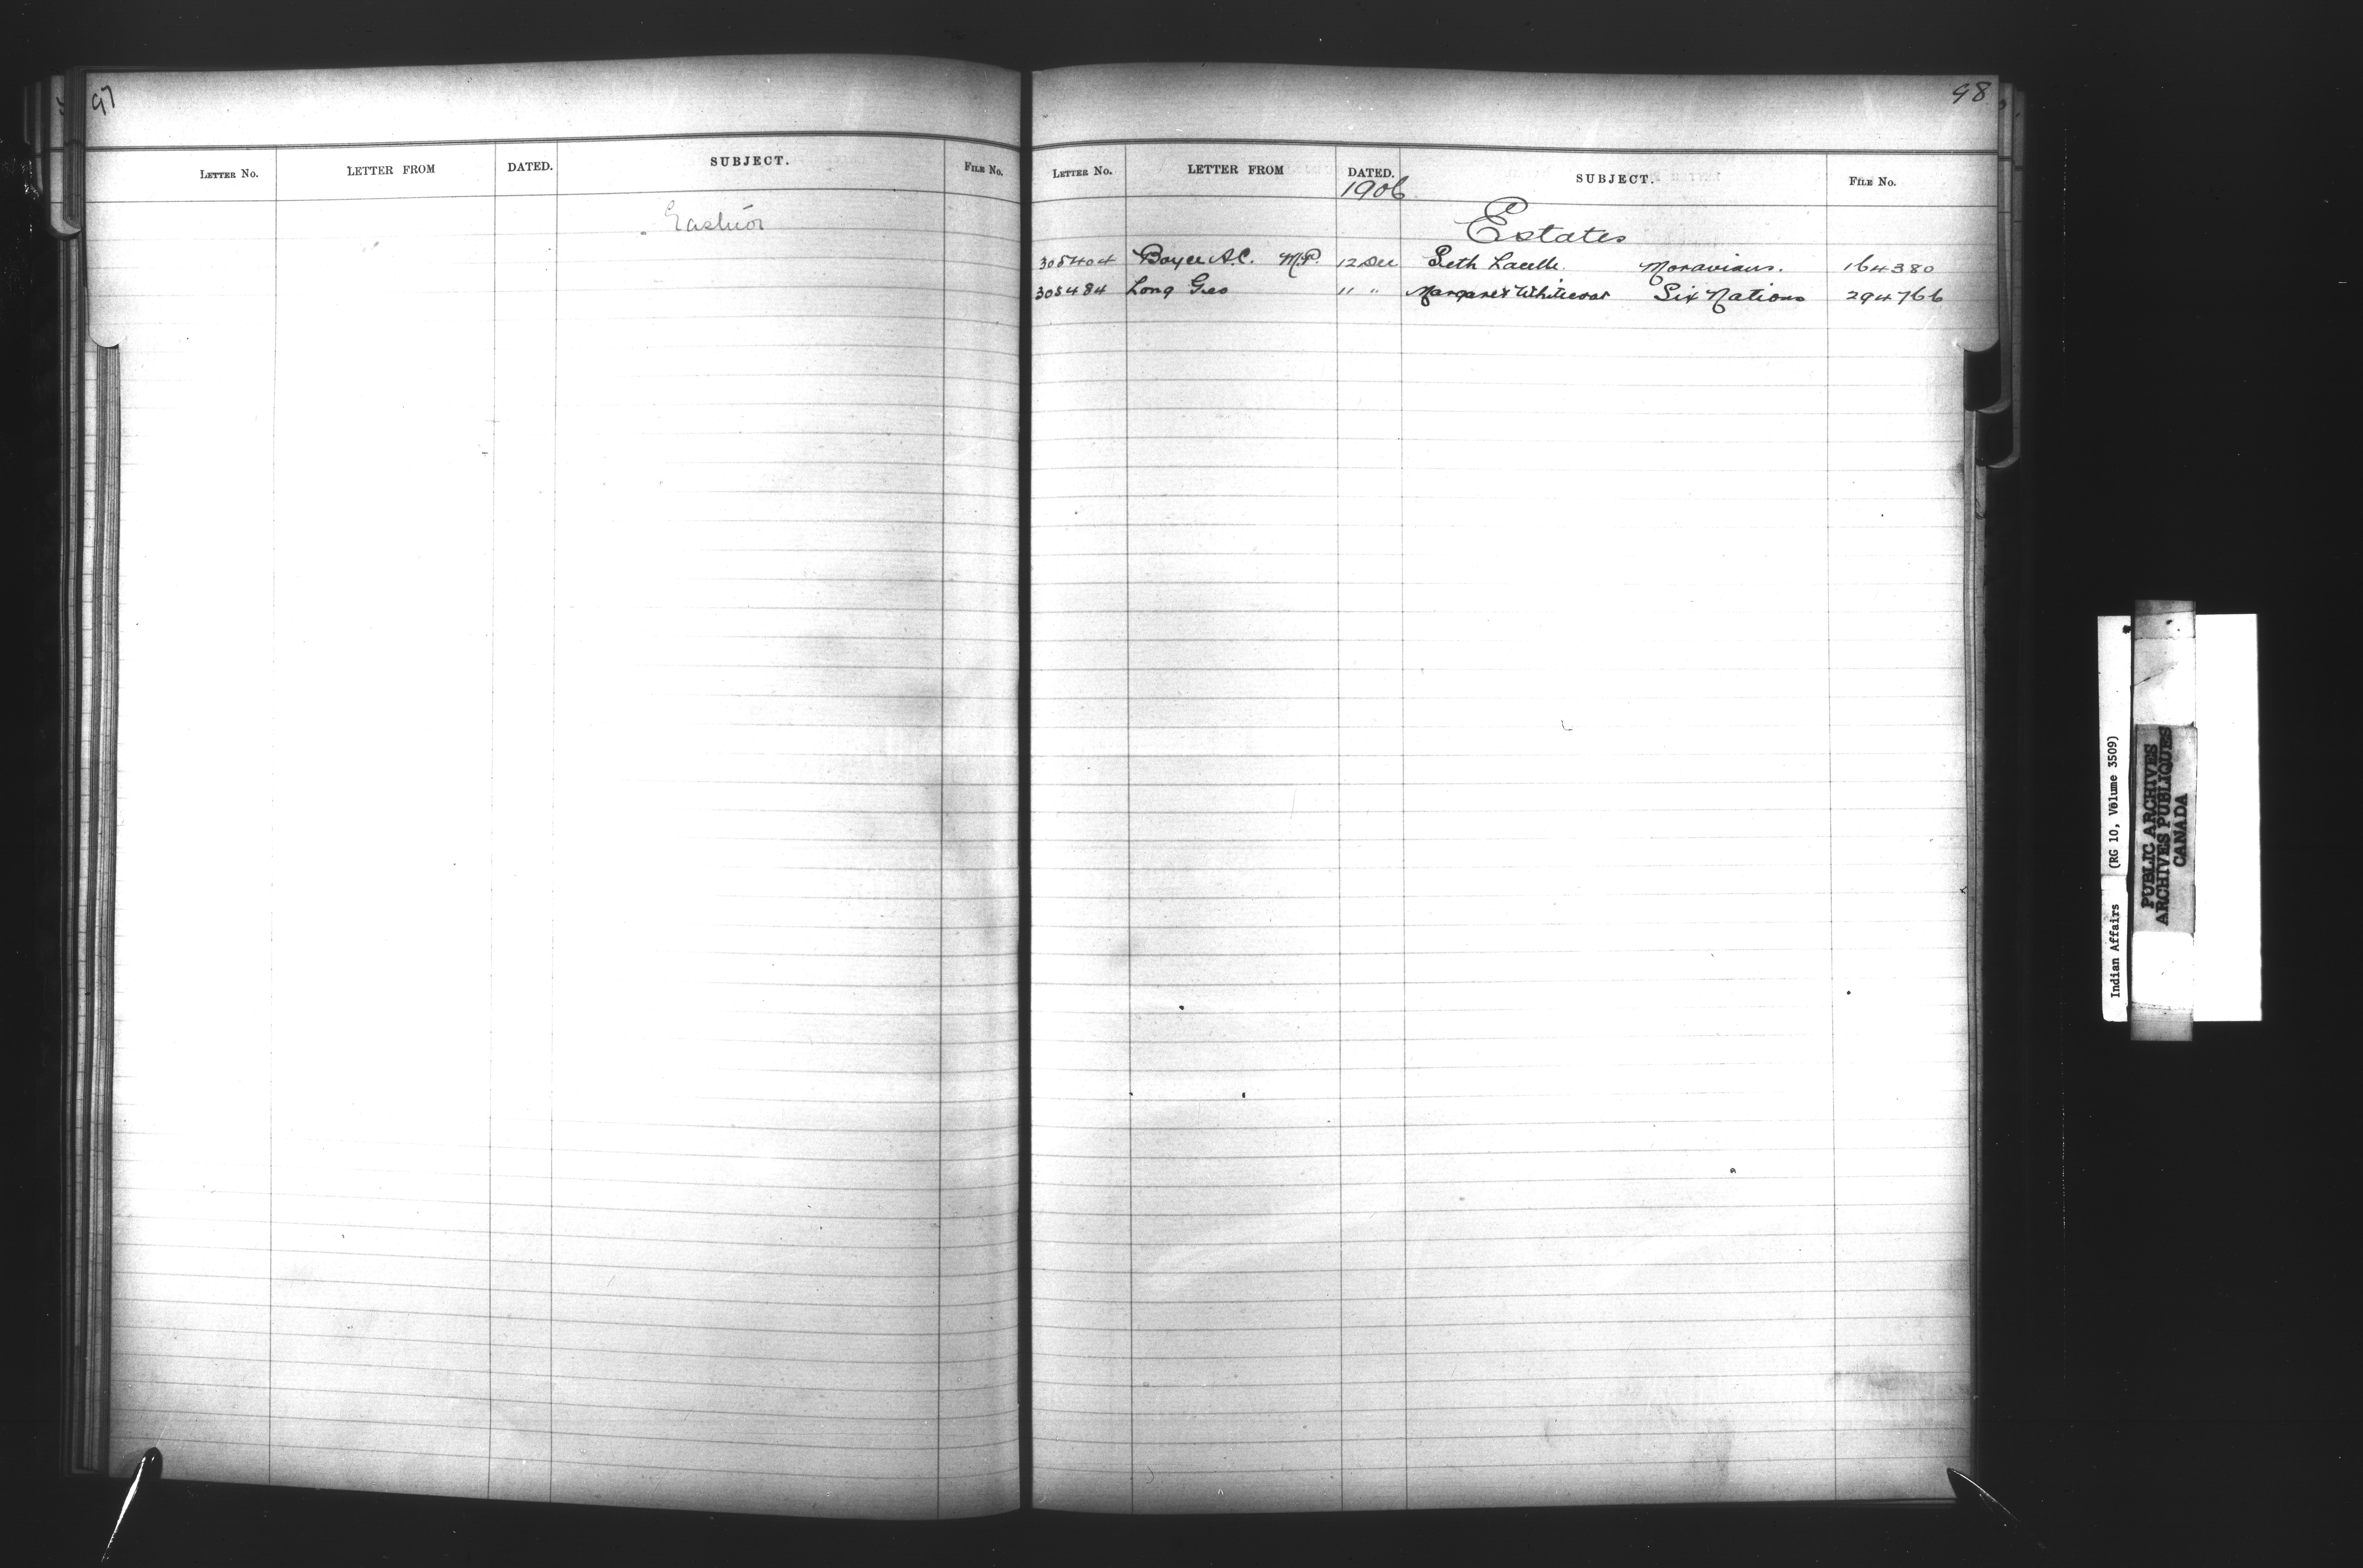 97
LETTER NO. LETTER FROM DATED. SUBJECT. FILE NO.
Eastnor
98
LETTER NO. LETTER FROM DATED. SUBJECT. FILE NO.
1906
Estates
305404 Boyce A.C. M.P. 12 Dec Seth Lacelle. Moravians. 164380
305484 Long Geo " " Margaret Whitecoat Six Nations 294766
Indian Affairs (RG 10, Volume 3509)
PUBLIC ARCHIVES
ARCHIVES PUBLIQUES
CANADA